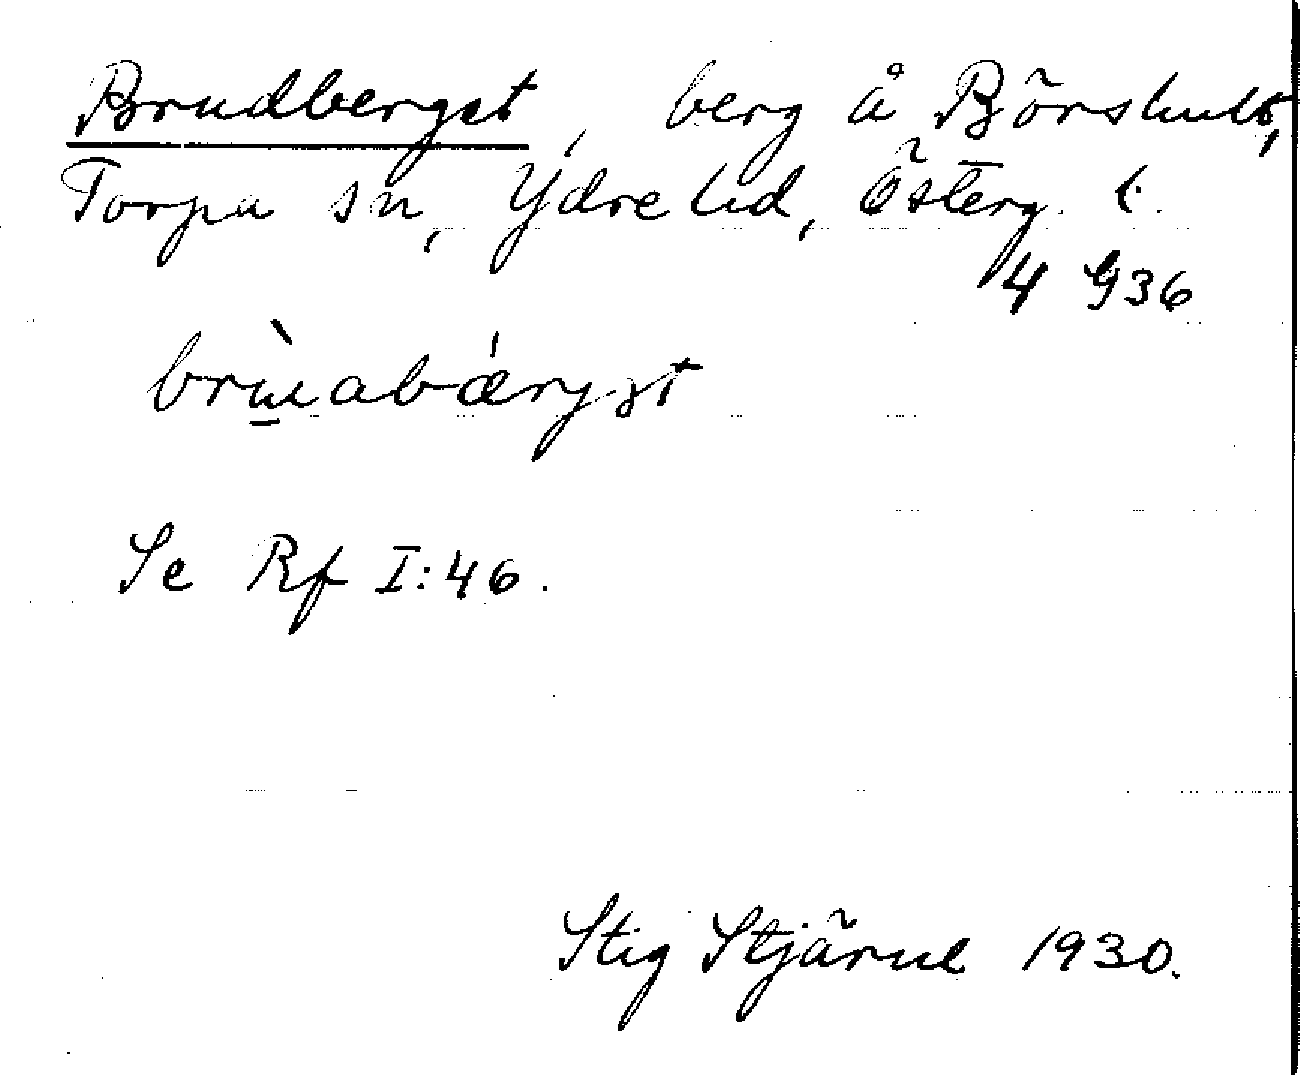 Brudberget, berg å Börshult,
Torpa sn, Ydre hd, Österg. l.
4 G36
brùabǽrjət
Se Rf I:46.
Stig Stjärne 1930.